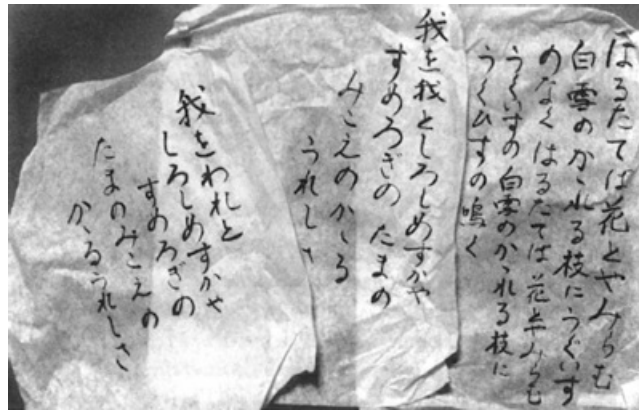 はるたては花とやみらむ
白雪のかゝれる枝にうぐいす
のなくはるたては花とやみらむ
うぐいすの白雪のかゝれる枝に
うぐひすの鳴く
我を我としろしめすかや
すめろぎのたまの
みこえのかゝる
うれしさ
我をわれと
しろしめすかや
すめろぎの
たまのみこえの
かゝるうれしさ